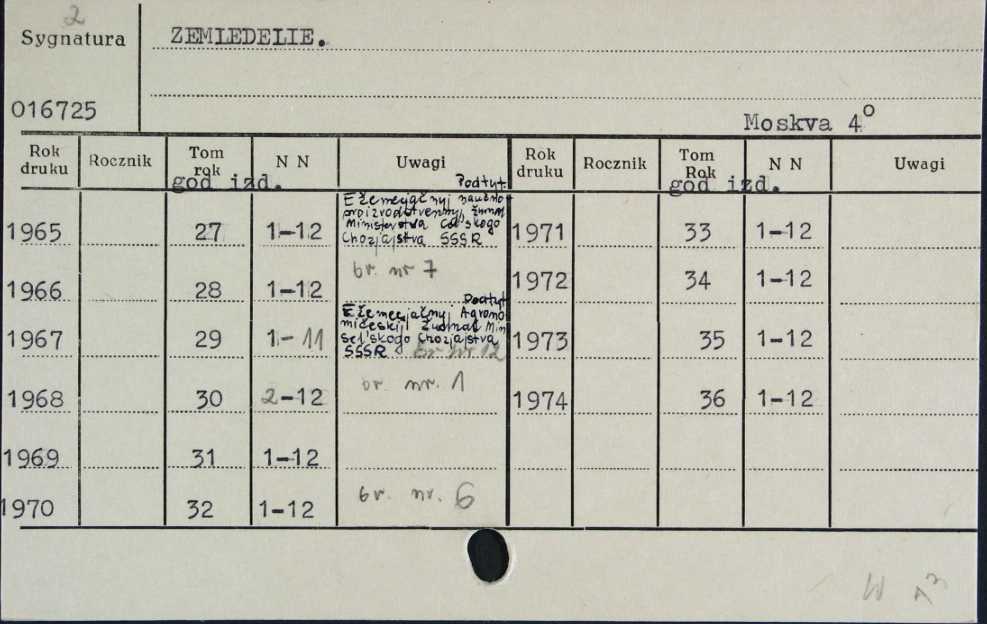 2
Sygnatura
ZEMLEDELIE.
016725
Moskva 4o
Rok druku Rocznik Tom rok N N Uwagi Rok druku Rocznik Tom Rok N N Uwagi
god izd. god izd.
Podtyt.
Ežemesjačnyj naučno-
proizvodstvennyj žurnal
Ministerstva Sel'skogo
Chozjajstva SSSR
1965 27 1-12 1971 33 1-12
br. nr 7
1966 28 1-12 1972 34 1-12
Podtyt.
Ežemesjačnyj Agrono-
mičeskij Žurnal Min.
sel'skogo chozjajstva
SSSR br nr 12
1967 29 1-11 1973 35 1-12
br. nr. 1
1968 30 2-12 1974 36 1-12
1969 31 1-12
br. nr. 6
1970 32 1-12
W